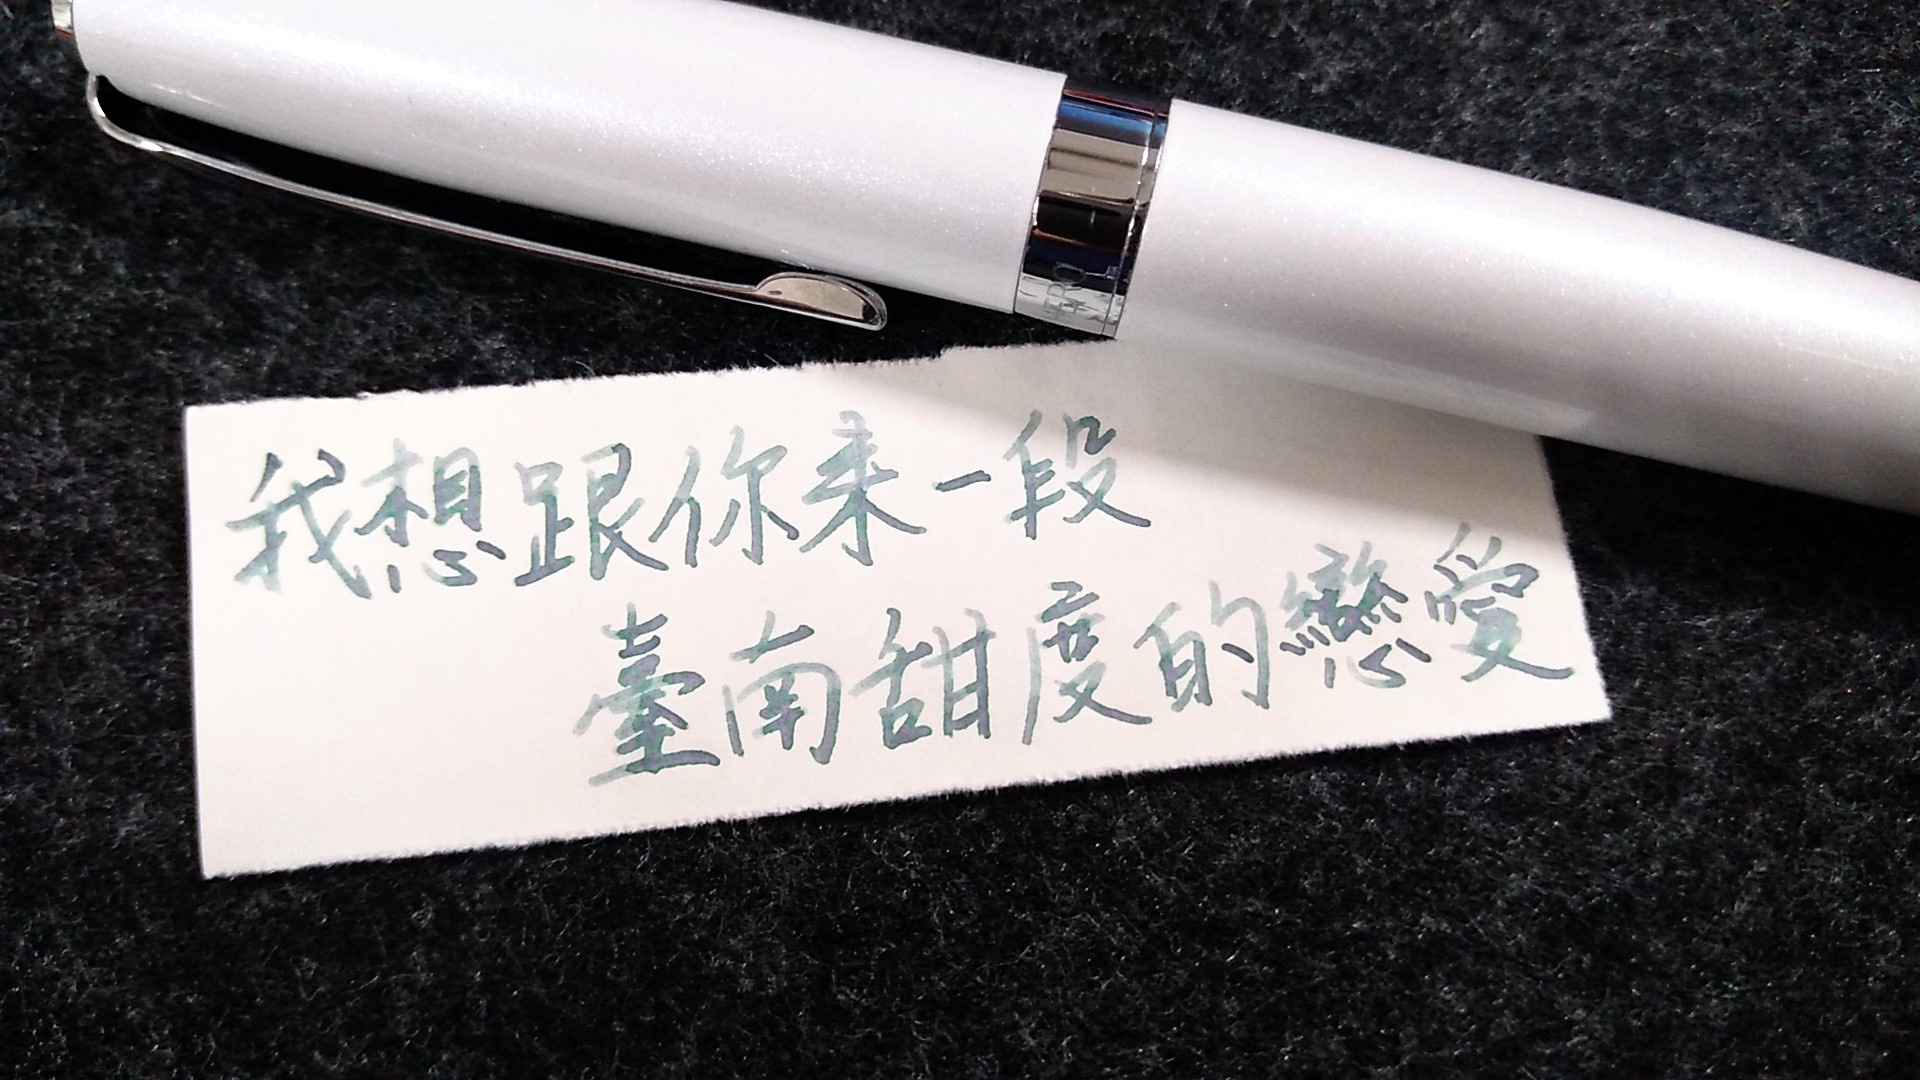 我想跟你来一段
臺南甜度的戀愛